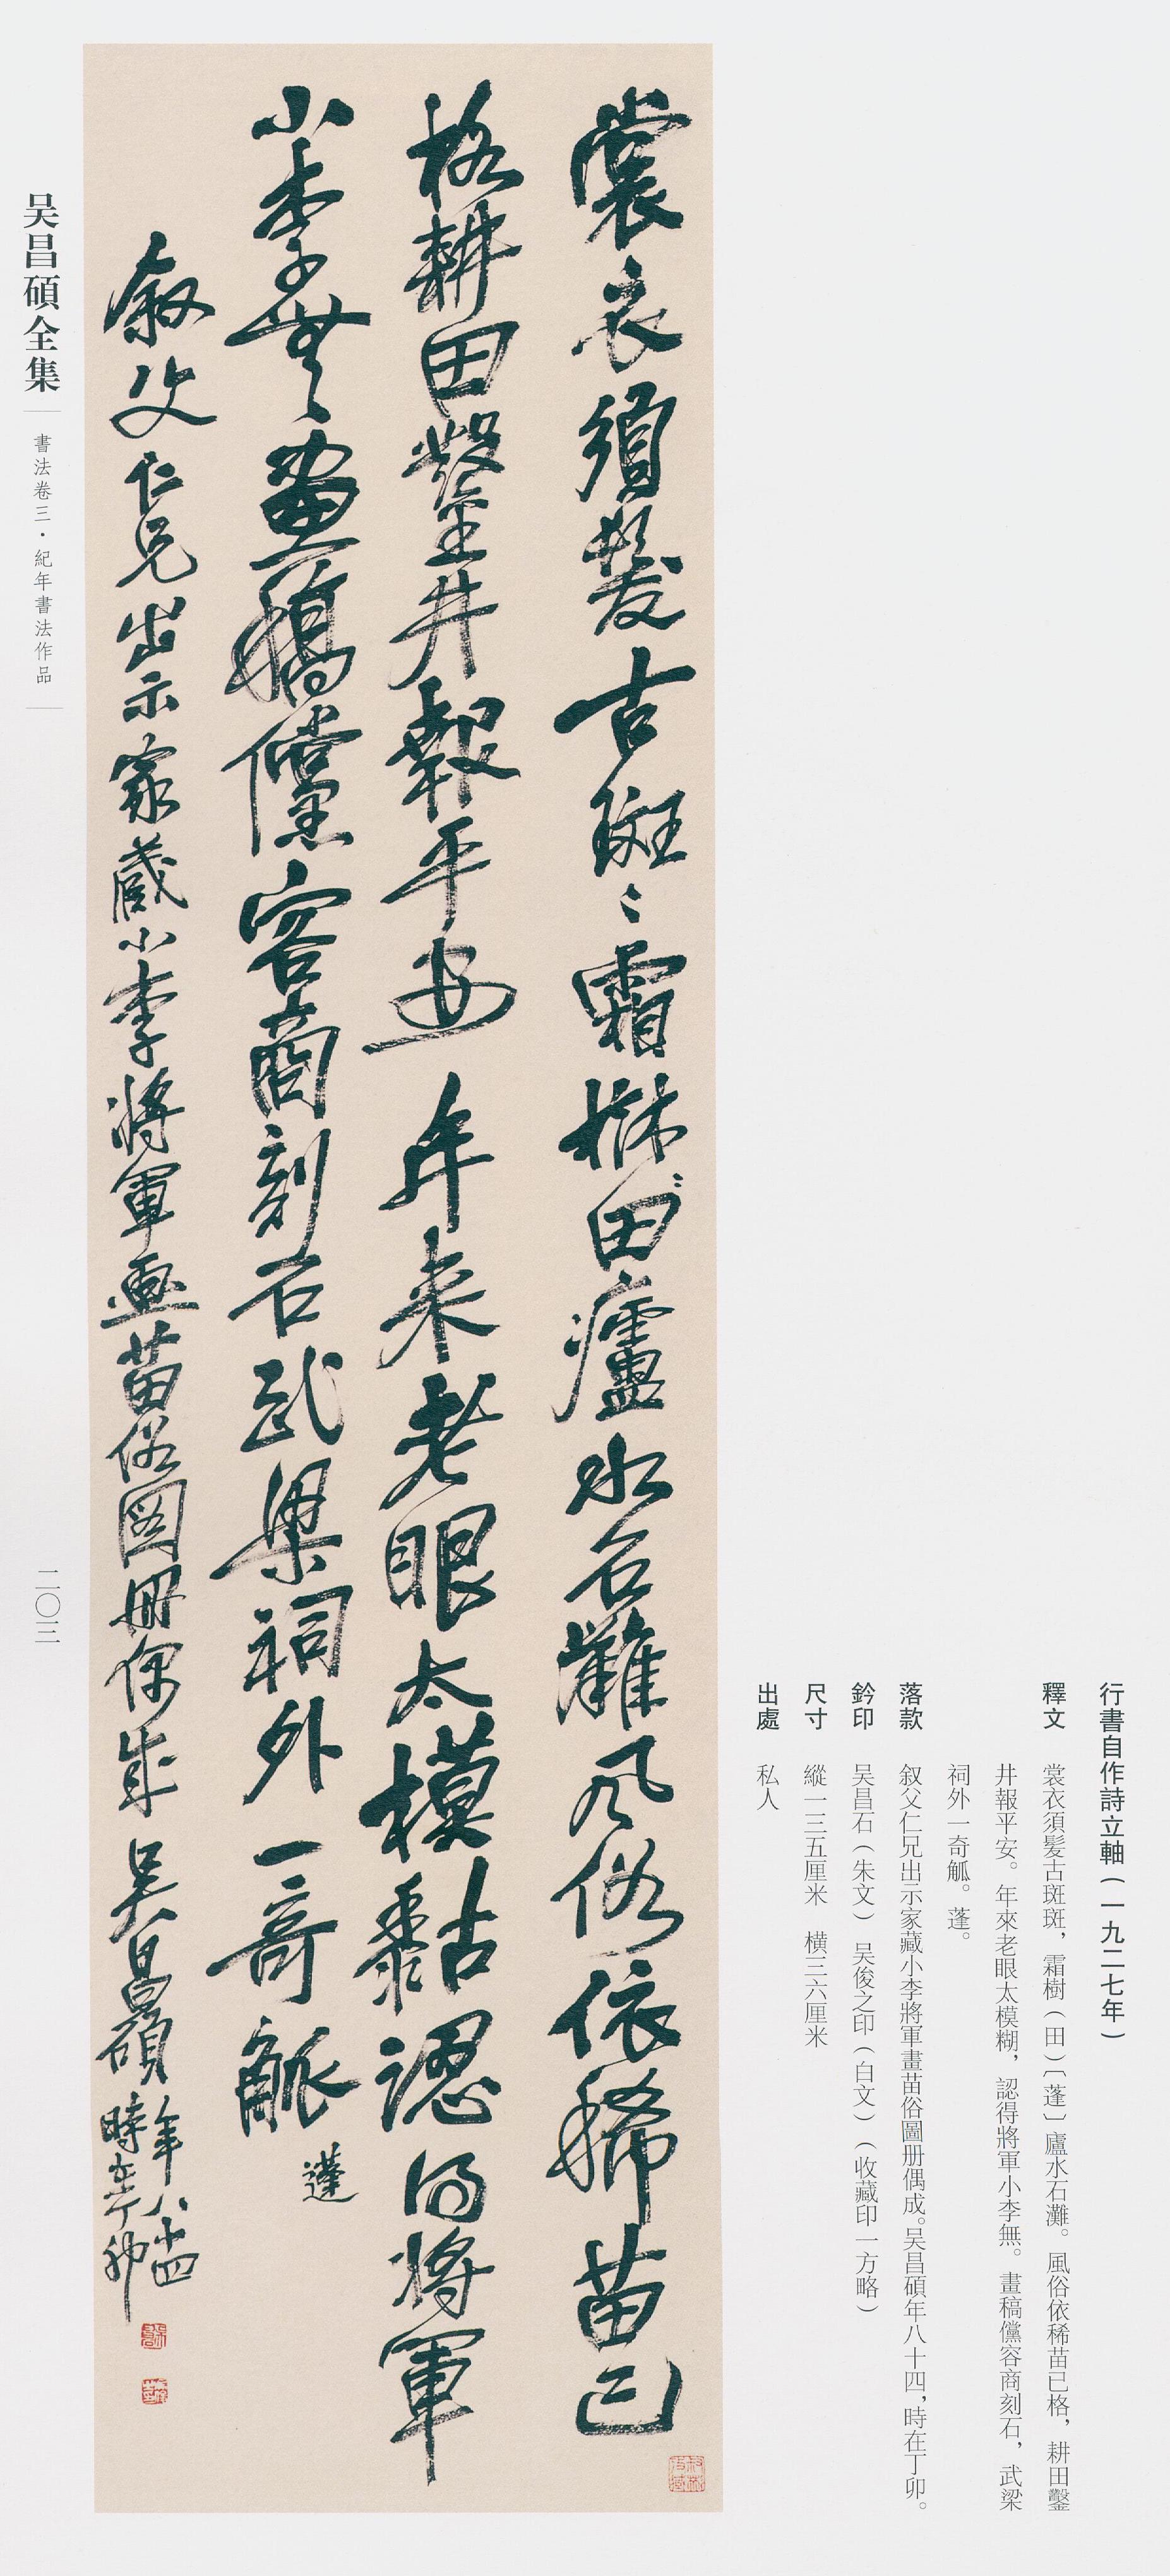 行書自作詩立軸（一九二七年）
釋文　裳衣須髪古斑斑，霜樹（田）〔蓬〕廬水石灘。風俗依稀苗已格，耕田鑿
井報平安。年來老眼太模糊，認得將軍小李無。畫稿儻容商刻石，武梁
祠外一奇觚。蓬。
落款　叙父仁兄出示家藏小李將軍畫苗俗圖册偶成。吴昌碩年八十四，時在丁卯。
鈐印　吴昌石（朱文）　吴俊之印（白文）（收藏印一方略）
尺寸　縱一三五厘米　横三六厘米
出處　私人
裳衣須髪古斑〻霜樹田廬水石灘風俗依稀苗已
格耕田鑿井報平安年來老眼太模黏認得將軍
小李無畫稿儻容商刻石武梁祠外一奇觚 蓬
叙父仁兄出示家藏小李將軍畫苗俗圖册偶成 吴昌碩
年八十四
時在丁卯
吴昌碩全集
書法卷三・紀年書法作品
二〇三